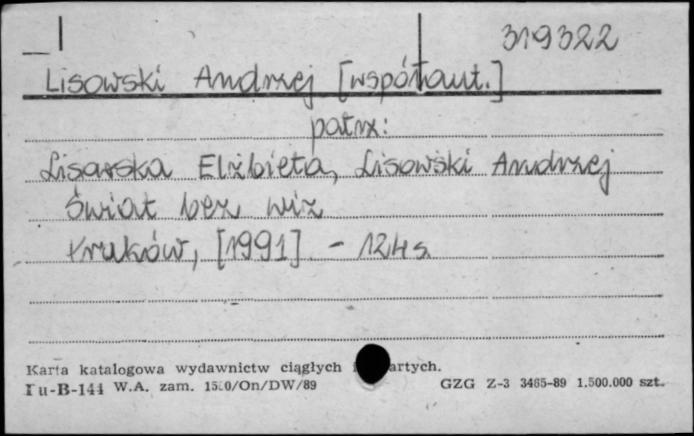 319322
Lisowski Andrzej [współaut.]
patrz:
Lisowska Elżbieta, Lisowski Andrzej
Świat bez wiz
Kraków, [1991] - 124 s.
Karta katalogowa wydawnictw ciągłych i zwartych.
Pu-B-144 W.A. zam. /On/DW/89 GZG Z-3 3465-89 1.500.000 szt.